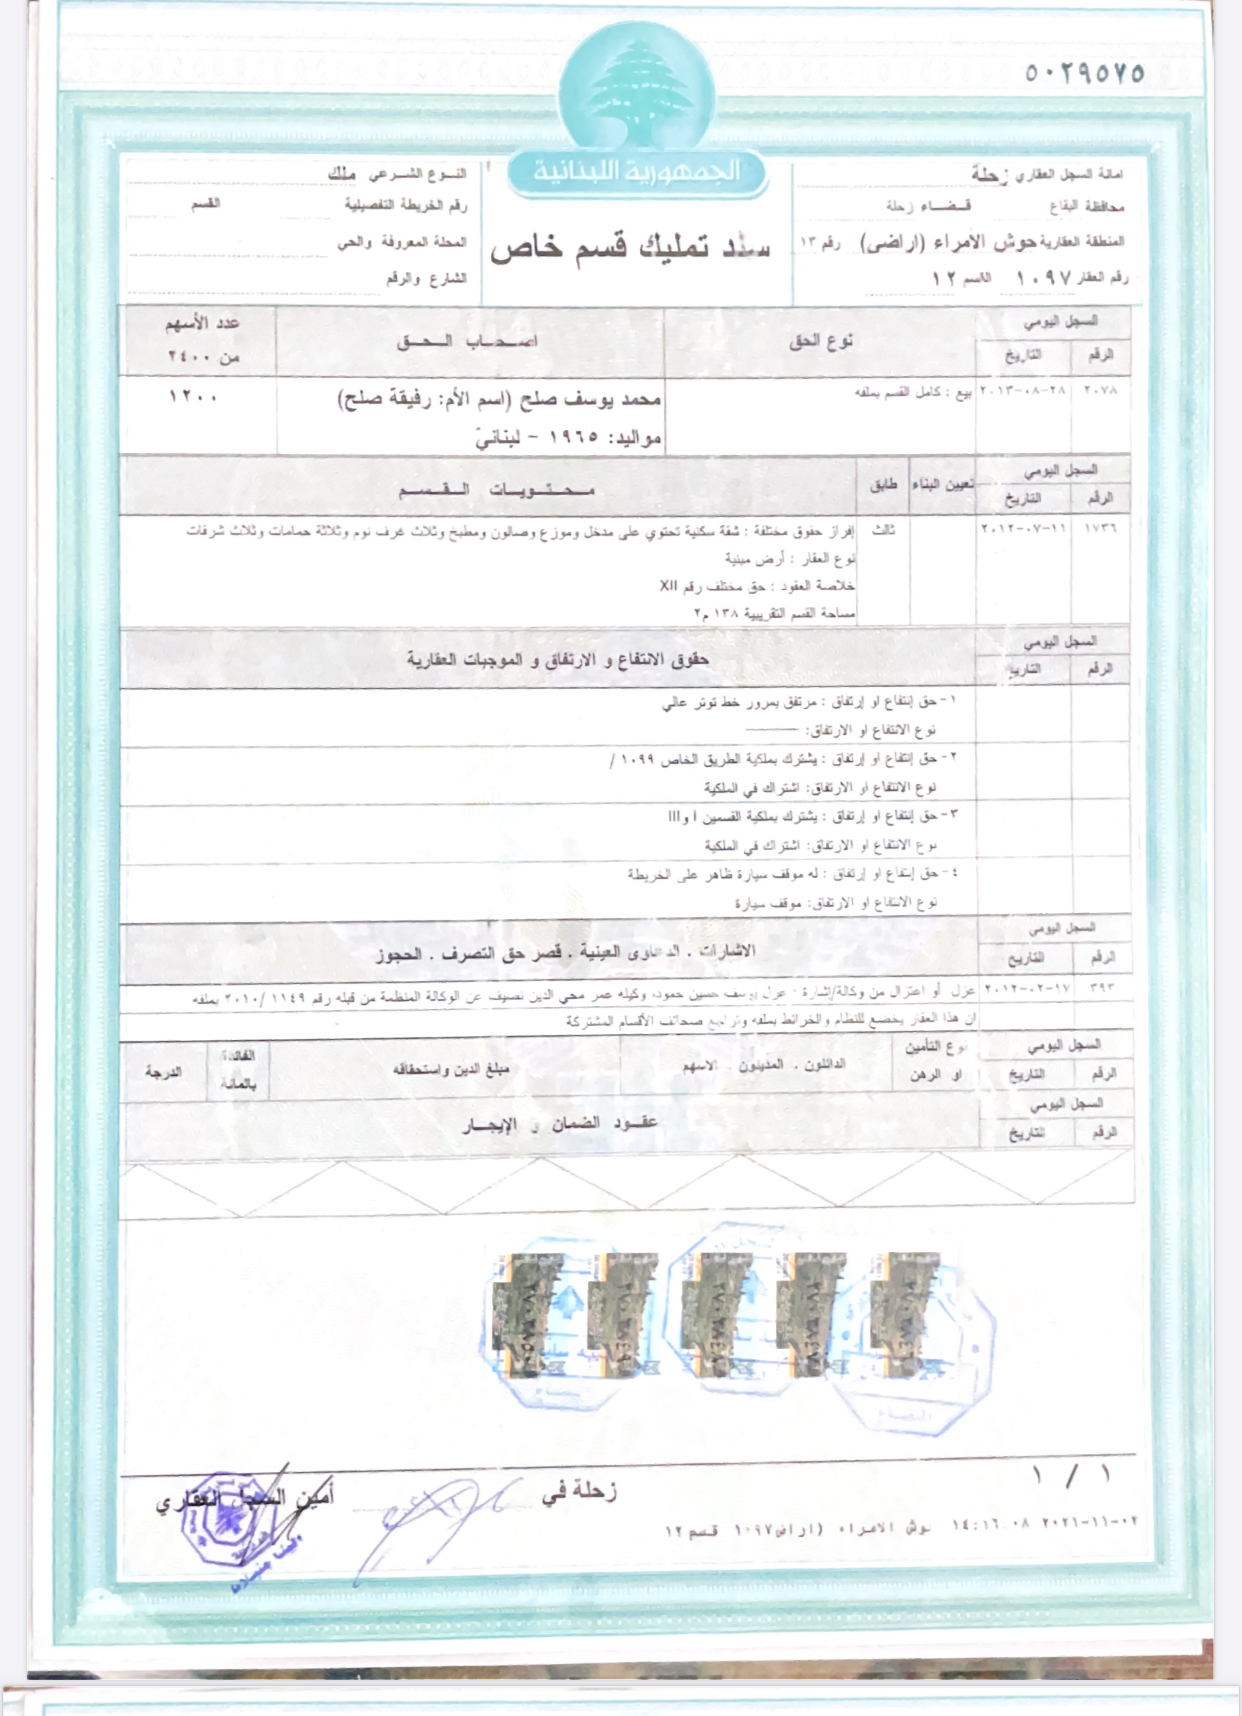 ٥٠٢٩٥٧٥
الجمهورية اللبنانية
امانة السجل العقاري زحلة
محافظة البقاع قضاء زحلة
المنطقة العقارية حوش الأمراء (اراضي) رقم ١٣
رقم العقار ١٠٩٧ القسم ١٢
سند تمليك قسم خاص
النوع الشرعي ملك
رقم الخريطة التفصيلية القسم
المحلة المعروفة والحي
الشارع والرقم
السجل اليومي
الرقم التاريخ
نوع الحق
اصحاب الحق
عدد الأسهم
من ٢٤٠٠
٢٠٧٨ ٢٨-٠٨-٢٠١٣ بيع : كامل القسم بملفه
محمد يوسف صلح (اسم الأم: رفيقة صلح)
مواليد: ١٩٦٥ - لبنانيّ
١٢٠٠
السجل اليومي
الرقم التاريخ
تعيين البناء
طابق
محتويات القسم
١٧٣٦ ١١-٠٧-٢٠١٢
ثالث
إفراز حقوق مختلفة : شقة سكنية تحتوي على مدخل وموزع وصالون ومطبخ وثلاث غرف نوم وثلاثة حمامات وثلاث شرفات
نوع العقار : أرض مبنية
خلاصة العقود : حق مختلف رقم XII
مساحة القسم التقريبية ١٣٨ م٢
السجل اليومي
الرقم التاريخ
حقوق الانتفاع و الارتفاق و الموجبات العقارية
١- حق إنتفاع او إرتفاق : مرتفق بمرور خط توتر عالي
نوع الانتفاع او الارتفاق:
٢- حق إنتفاع او إرتفاق : يشترك بملكية الطريق الخاص ١٠٩٩ /
نوع الانتفاع او الارتفاق: اشتراك في الملكية
٣- حق إنتفاع او إرتفاق : يشترك بملكية القسمين I و III
نوع الانتفاع او الارتفاق: اشتراك في الملكية
٤- حق إنتفاع او إرتفاق : له موقف سيارة ظاهر على الخريطة
نوع الانتفاع او الارتفاق: موقف سيارة
السجل اليومي
الرقم التاريخ
الاشارات . الدعاوى العينية . قصر حق التصرف . الحجوز
٣٩٣ ١٧-٠٢-٢٠١٢ عزل أو اعتزال من وكالة/إشارة : عزل يوسف حسين حمود، وكيله عمر محي الدين نصيف عن الوكالة المنظمة من قبله رقم ١١٤٩ /٢٠١٠ بملفه
ان هذا العقار يخضع للنظام والخرائط بملفه وتراجع صحائف الأقسام المشتركة
السجل اليومي
الرقم التاريخ
نوع التأمين
او الرهن
الدائنون . المدينون . الاسهم
مبلغ الدين واستحقاقه
الفائدة
بالمائة
الدرجة
السجل اليومي
الرقم التاريخ
عقود الضمان و الإيجار
البقاع
١ / ١
زحلة في
أمين السجل العقاري
٠٢-١١-٢٠٢١ ١٤:١٦:٠٨ حوش الامراء (اراض ١٠٩٧ قسم ١٢